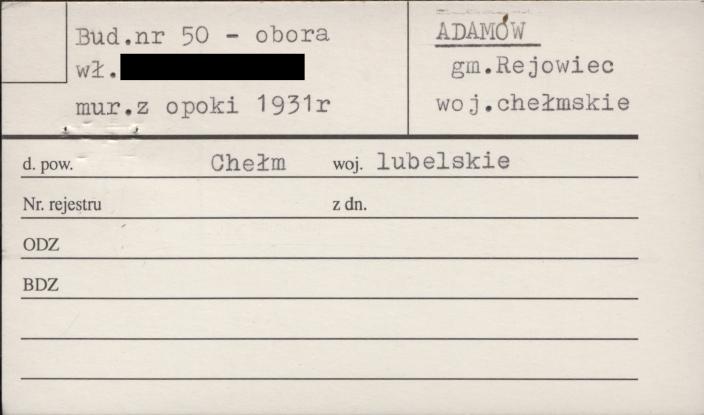 Bud.nr 50 - obora
wł.
mur.z opoki 1931r
ADAMÓW
gm.Rejowiec
woj.chełmskie
d. pow. Chełm woj. lubelskie
Nr. rejestru z dn.
ODZ
BDZ